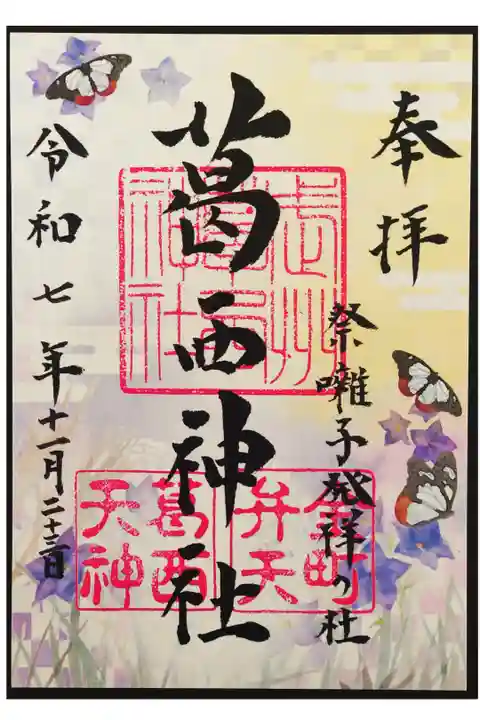 奉拝
祭囃子発祥の社
葛西神社
令和七年十一月二十三日
武州葛西神社
金町弁天
葛西天神